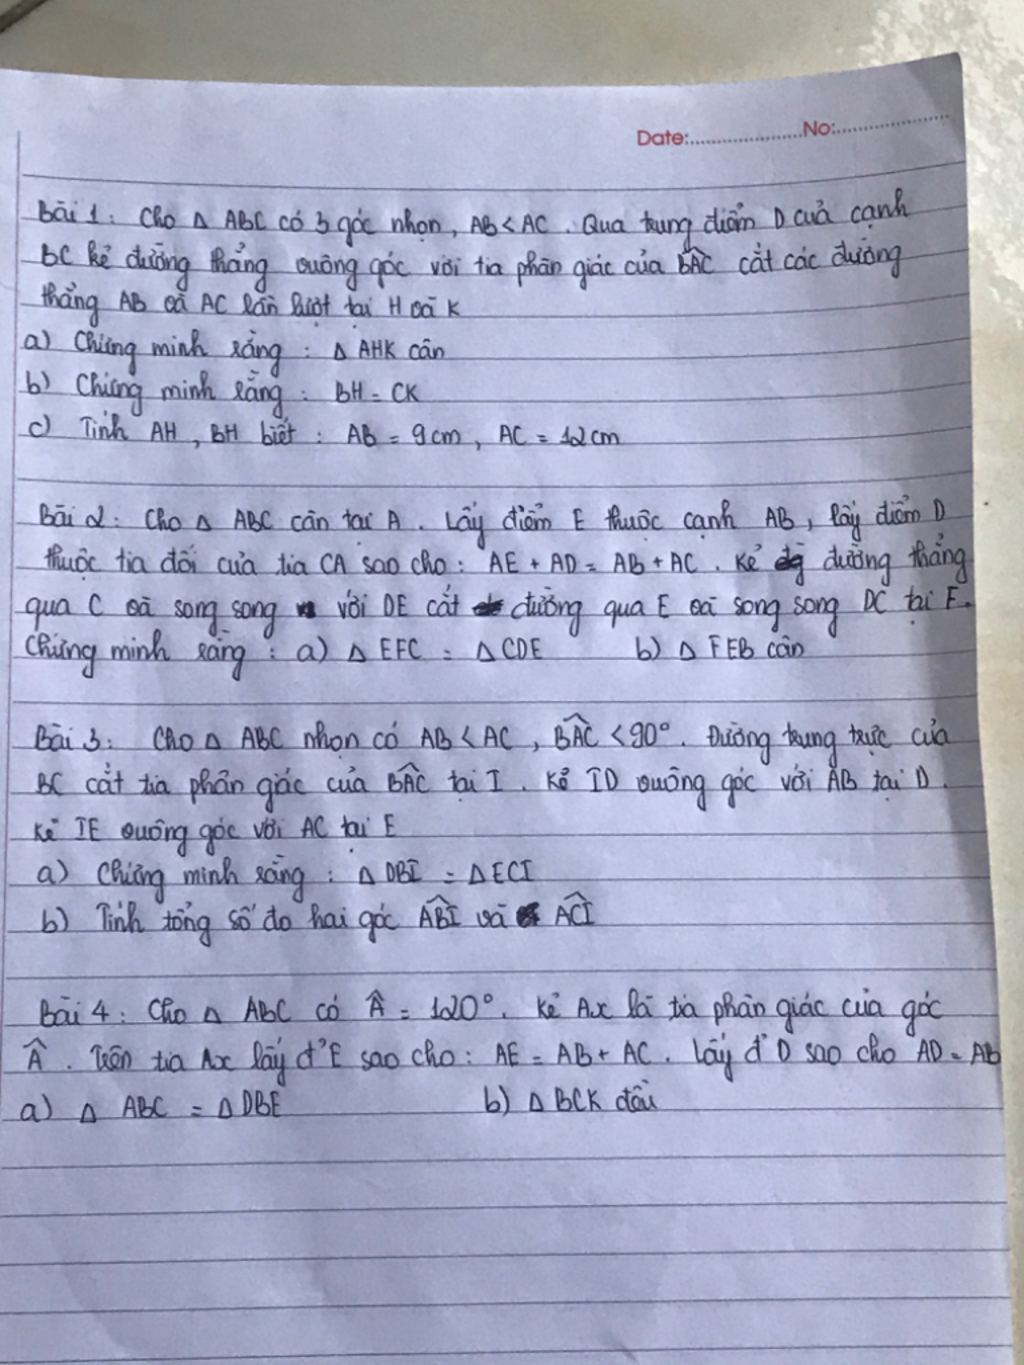 Date:....................No:....................
Bài 1: Cho Δ ABC có 3 góc nhọn, AB < AC. Qua trung điểm D của cạnh
BC kẻ đường thẳng vuông góc với tia phân giác của BAC cắt các đường
thẳng AB và AC lần lượt tại H và K
a) Chứng minh rằng: Δ AHK cân
b) Chứng minh rằng: BH = CK
c) Tính AH, BH biết: AB = 9cm, AC = 12cm
Bài 2: Cho Δ ABC cân tại A. Lấy điểm E thuộc cạnh AB, lấy điểm D
thuộc tia đối của tia CA sao cho: AE + AD = AB + AC. Kẻ đường thẳng
qua C và song song với DE cắt đường qua E và song song DC tại F.
Chứng minh rằng: a) Δ EFC = Δ CDE b) Δ FEB cân
Bài 3: Cho Δ ABC nhọn có AB < AC, BAC < 90°. Đường trung trực của
BC cắt tia phân giác của BAC tại I. Kẻ ID vuông góc với AB tại D.
Kẻ IE vuông góc với AC tại E
a) Chứng minh rằng: Δ DBI = Δ ECI
b) Tính tổng số đo hai góc ABI và ACI
Bài 4: Cho Δ ABC có Â = 120°. Kẻ Ax là tia phân giác của góc
Â. Trên tia Ax lấy đ' E sao cho: AE = AB + AC. Lấy đ' D sao cho AD = AB
a) Δ ABC = Δ DBE b) Δ BCK đều